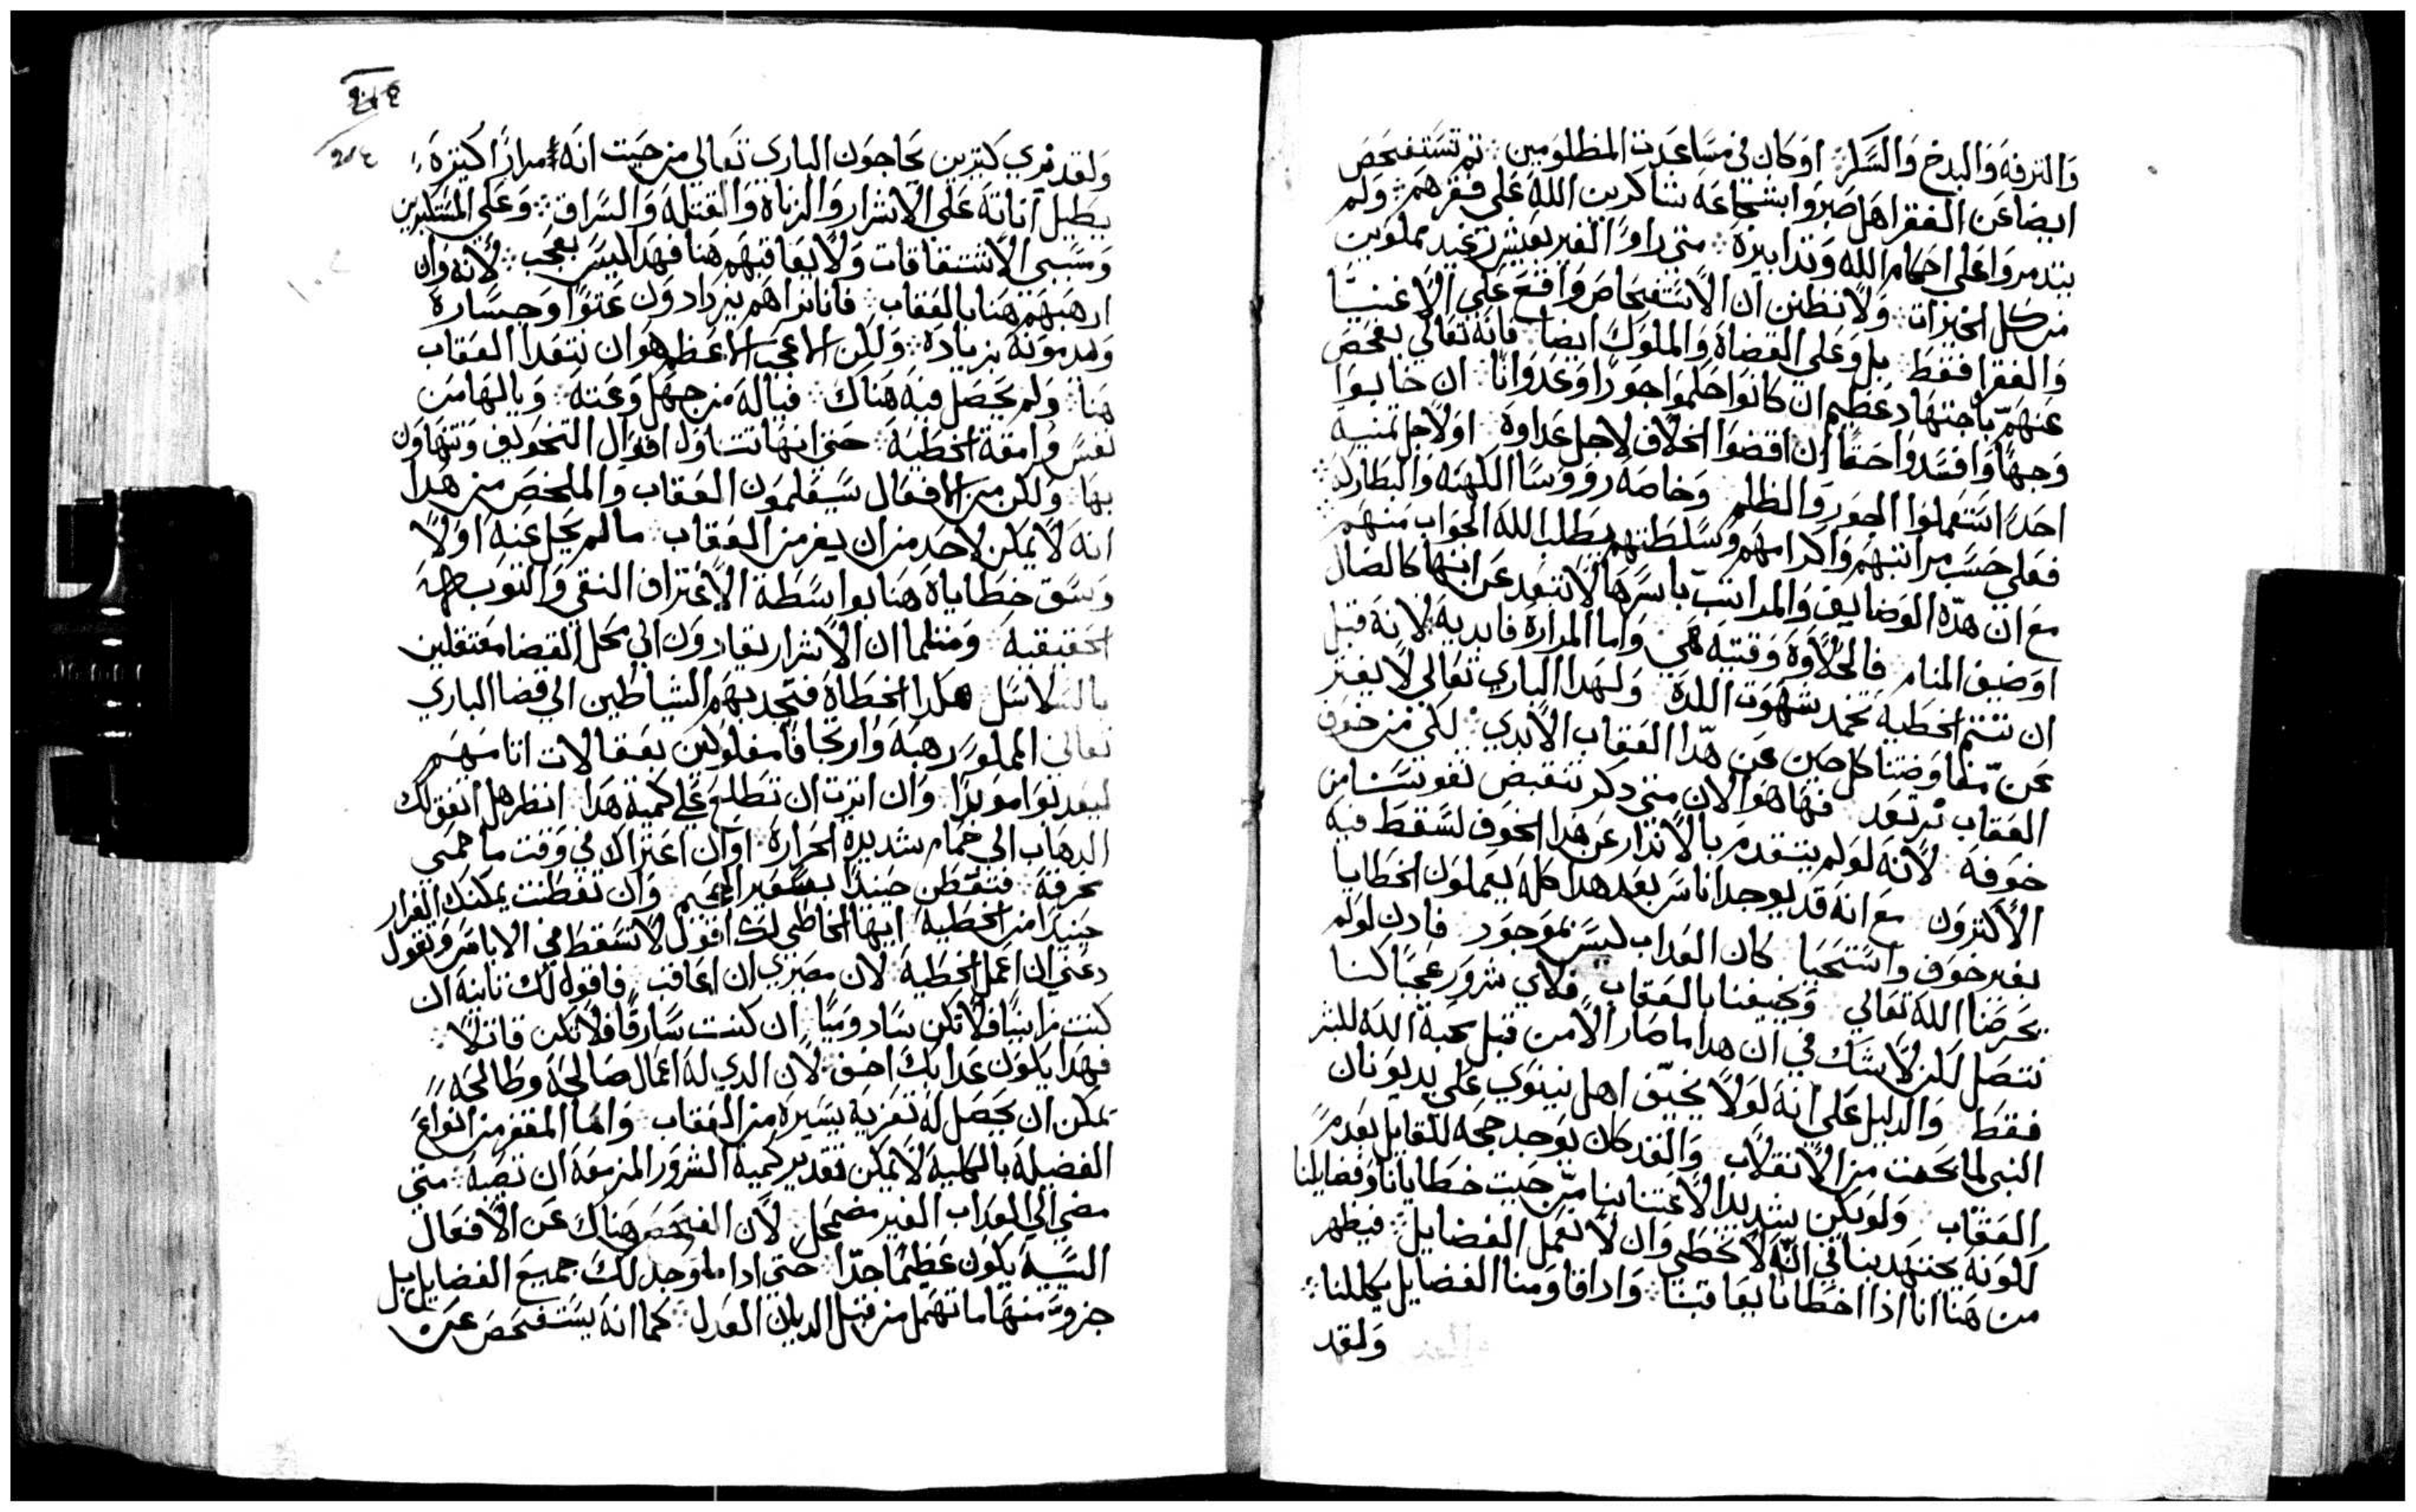 والترفه والبدخ والسكر ❖ او كان في مساعدت المظلومين ❖ ثم تستفحص
ايضا عن الفقرا هل صبروا بشجاعه شاكرين الله على فقرهم ❖ ولم
يتدمروا على احكام الله وتدابيره ❖ متي راوا الغير بعيش رغيد مملوين
من كل الخيرات ❖ ولا تظنن ان الاستفحاص واقع على الاغنيا
والفقرا فقط ❖ بل وعلى القضاة والملوك ايضا ❖ فانه تعالي يفحص
عنهم باجتهاد عظيم ان كانوا حكموا جورا وعدوانا ❖ ان خابوا
وجها وافسدوا حقا ان اقضوا الخلاف لاجل عداوة ❖ او لاجل تمنيه
احد استعملوا الجور والظلم ❖ وخاصه رووسا الكهنه والبطاركه ❖
فعلي حسب مراتبهم واكرامهم وسلطتهم يطلب الله الجواب منهم ❖
مع ان هده الوضايف والمراتب باسرها لا تتعد عن انها كالضال
او ضيف المنام ❖ فالحلاوة وقتيه هي ❖ واما المرارة فابديه لانه قبل
ان تتم الخطيه تخمد شهوت اللدة ❖ ولهدا الباري تعالي لا يفتر
عن مفاوضتنا كل حين عن هدا العقاب الابدي ❖ لكي من خوف
العقاب نرتعد ❖ فها هوا الان متي دكر تنقبض نفوسنا من
خوفه ❖ لانه لو لم يتقدم بالاندار عن هدا الخوف لسقط فيه
الاكثرون ❖ مع انه قد يوجد اناس بعد هدا كله يعملون الخطايا
بغير خوف واستحيا ❖ كان العداب ليس بموجود ❖ فادن لو لم
يحرضنا الله تعالي ❖ ويخيفنا بالعقاب ❖ فلاي شرور عجبا كنا
نتصل لكن لا شك في ان هدا ما صار الا من قبل محبة الله للبشر
فقط ❖ والدليل على انه لولا يخيف اهل نينوي على يد يونان
النبي لما نجت من الانقلاب ❖ والقد كان يوجد حجه للقايل بعدم
العقاب ❖ ولو يكن شديد الاعتنا بنا من حيت خطايانا وفضايلنا
لكونه يجتهد بنا في انه لا نخطي وان لا نعمل الفضايل ❖ فيظهر
من هنا انا اذا اخطانا يعاقبنا ❖ وادا قاومنا الفضايل يكللنا ❖
ولقد
ولقد نري كتيرين يحاجون الباري تعالي من حيت انه مرارا كتيرة
يطيل اناته على الاشرار والزناه والقتله والسراق ❖ وعلى المستكبرين
ومسببي الانشقاقات ولا يعاقبهم هنا فهدا ليس بعجب ❖ لانه وان
ارهبهم هنا بالعقاب ❖ فاننا نراهم يزدادون عتوا وجسارة
ومدمونه بزياده ❖ ولكن العجب الاعظم هو ان نتعدا العقاب
هنا ❖ ولم يحصل فيه هناك ❖ فياله من جهل وعته ❖ ويالها من
نفس وامقة الخطية ❖ حتي انها تتناول اقوال التخويف وتتهاون
بها ❖ ولكن من الافعال سيعلمون العقاب والملخص من هدا
انه لا يمكن لاحد من ان يفر من العقاب ❖ ما لم يحل عنه اولا
وسق خطاياه هنا بواسطة الاعتراف النقي والتوبه
الحقيقيه ❖ ومتلما ان الاشرار يقادون الي محل القضا معتقلين
بالسلاسل هكدا الخطاه فتجديهم الشياطين الي قضا الباري
تعالي المملو رهبة وارتجافا مغلولين بعقالات اتامهم
ليعدبوا موبدا ❖ وان اترت ان تطلع على كمية هدا ❖ انظر هل اتفق لك
الدهاب الي حمام شديدة الحرارة ❖ او ان اعتراك في وقت ما حمي
محرقة ❖ فتفطن حينيدا بسعير الجحيم ❖ وان تفطنت يمكنك الفرار
حينيدا من الخطيه ❖ ايها الخاطي لك اقول لا تسقط في الاياس وتقول
دعني ان اعمل الخطية ❖ لان مصيري ان اعاقب ❖ فاقول لك تانية ان
كنت زانيا فلا تكن سادوميا ❖ ان كنت سارقا فلا تكن قاتلا ❖
فهدا يكون عدابك اخف ❖ لان الدي له اعمال صالحة وطالحه
يمكن ان يحصل له تعزية يسيره من العقاب ❖ واما المقفر من انواع
الفضيله بالكلية لا يمكن تقدير كمية الشرور المزمعة ان تصبه ❖ متي
مضي الي العداب الغير مضمحل ❖ لان الفحص هناك عن الافعال
السية يكون عظيما جدا ❖ حتي ادا ما وجد لك جميع الفضايل بل
جزوة منها ما تهمل من قبل الديان العدل ❖ كما انه يستفحص عن